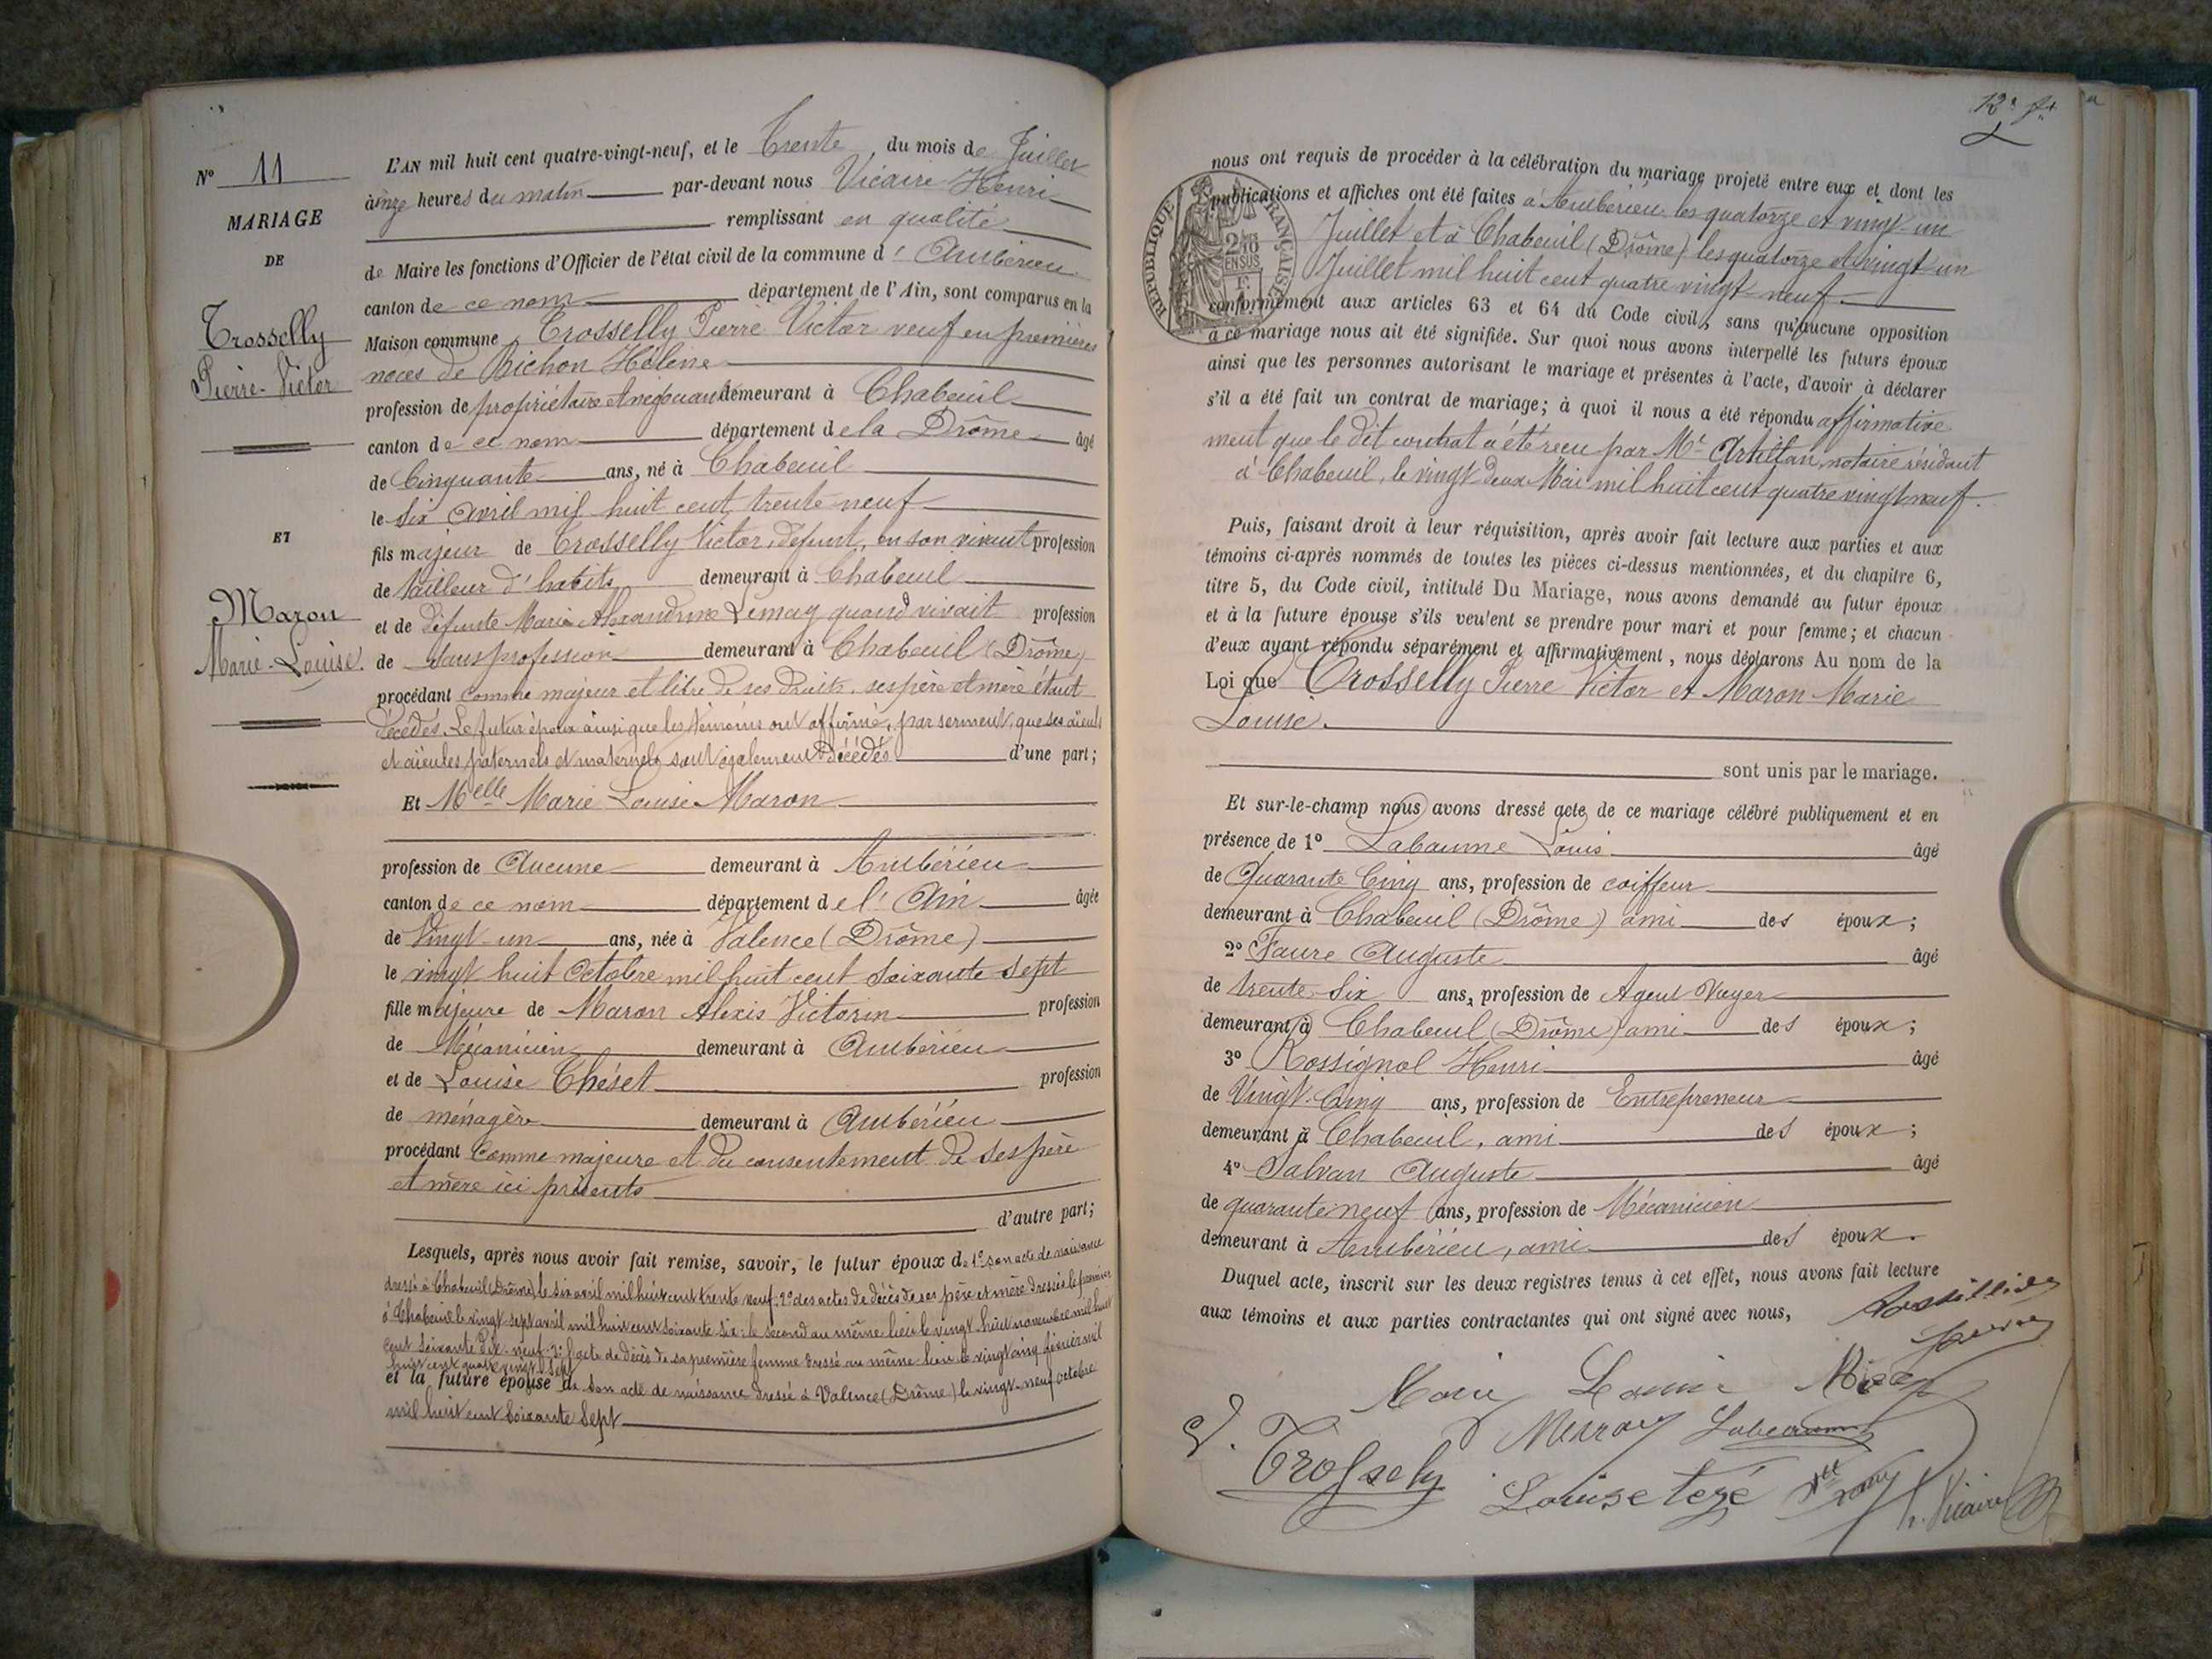 N° 11
MARIAGE
DE
Trosselly
Pierre-Victor
ET
Maron
Marie-Louise
L'AN mil huit cent quatre-vingt-neuf, et le Trente du mois de Juillet
à onze heures du matin par-devant nous Vicaire Henri
remplissant en qualité
de Maire les fonctions d'Officier de l'état civil de la commune d'Ambérieu
canton de ce nom département de l'Ain, sont comparus en la
Maison commune Trosselly Pierre Victor veuf en premières
noces de Bichon Hélène
profession de propriétaire et négociant demeurant à Chabeuil
canton de ce nom département de la Drôme âgé
de Cinquante ans, né à Chabeuil
le Six Avril mil huit cent trente neuf
fils majeur de Trosselly Victor, défunt, en son vivant profession
de tailleur d'habits demeurant à Chabeuil
et de défunte Marie Alexandrine Lemay quand vivait profession
de sans profession demeurant à Chabeuil (Drôme)
procédant comme majeur et libre de ses droits, ses père et mère étant
décédés. Le futur époux ainsi que les témoins ont affirmé, par serment, que ses aïeuls
et aïeules paternels et maternels sont également décédés d'une part;
Et Melle Marie Louise Maron
profession de Aucune demeurant à Ambérieu
canton de ce nom département de l'Ain âgée
de Vingt-un ans, née à Valence (Drôme)
le vingt huit Octobre mil huit cent soixante sept
fille majeure de Maron Alexis Victorin profession
de Mécanicien demeurant à Ambérieu
et de Louise Théset profession
de ménagère demeurant à Ambérieu
procédant comme majeure et du consentement de ses père
et mère ici présents
d'autre part;
Lesquels, après nous avoir fait remise, savoir, le futur époux de 1° son acte de naissance
dressé à Chabeuil (Drôme) le six avril mil huit cent trente neuf. 2° des actes de décès de ses père et mère dressés le premier
à Chabeuil le vingt sept avril mil huit cent soixante six; le second au même lieu le vingt huit novembre mil huit
cent soixante dix-neuf. 3° l'acte de décès de sa première femme dressé au même lieu le vingt cinq février mil
huit cent quatre vingt sept
et la future épouse de son acte de naissance dressé à Valence (Drôme) le vingt-neuf octobre
mil huit cent soixante Sept
nous ont requis de procéder à la célébration du mariage projeté entre eux et dont les
publications et affiches ont été faites à Ambérieu les quatorze et vingt-un
Juillet et à Chabeuil (Drôme) les quatorze et vingt un
Juillet mil huit cent quatre vingt-neuf.
RÉPUBLIQUE FRANÇAISE
2/10 EN SUS
conformément aux articles 63 et 64 du Code civil, sans qu'aucune opposition
à ce mariage nous ait été signifiée. Sur quoi nous avons interpellé les futurs époux
ainsi que les personnes autorisant le mariage et présentes à l'acte, d'avoir à déclarer
s'il a été fait un contrat de mariage; à quoi il nous a été répondu affirmative
ment que le dit contrat a été reçu par Me notaire résidant
à Chabeuil, le vingt deux Mai mil huit cent quatre vingt neuf.
Puis, faisant droit à leur réquisition, après avoir fait lecture aux parties et aux
témoins ci-après nommés de toutes les pièces ci-dessus mentionnées, et du chapitre 6,
titre 5, du Code civil, intitulé Du Mariage, nous avons demandé au futur époux
et à la future épouse s'ils veulent se prendre pour mari et pour femme; et chacun
d'eux ayant répondu séparément et affirmativement, nous déclarons Au nom de la
Loi que Trosselly Pierre Victor et Maron Marie
Louise.
sont unis par le mariage.
Et sur-le-champ nous avons dressé acte de ce mariage célébré publiquement et en
présence de 1° Labaume Louis âgé
de Quarante Cinq ans, profession de coiffeur
demeurant à Chabeuil (Drôme) ami des époux;
2° Faure Auguste âgé
de trente-six ans, profession de Agent Voyer
demeurant à Chabeuil (Drôme) ami des époux;
3° Rossignol Henri âgé
de Vingt-Cinq ans, profession de Entrepreneur
demeurant à Chabeuil, ami des époux;
4° Salvan Auguste âgé
de quarante neuf ans, profession de Mécanicien
demeurant à Ambérieu, ami des époux.
Duquel acte, inscrit sur les deux registres tenus à cet effet, nous avons fait lecture
aux témoins et aux parties contractantes qui ont signé avec nous,
V. Trossely
Louise tezé
h. Vicaire